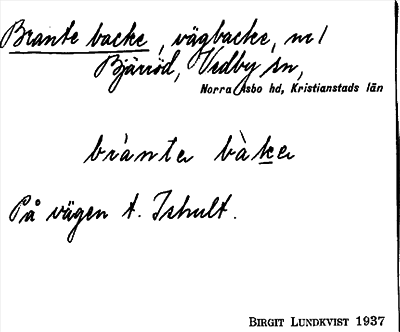 Brante backe, vägbacke, nr 1
Bjärröd, Vedby sn,
Norra Åsbo hd, Kristianstads län
bràntə bàkə
På vägen t. Ishult.
BIRGIT LUNDKVIST 1937